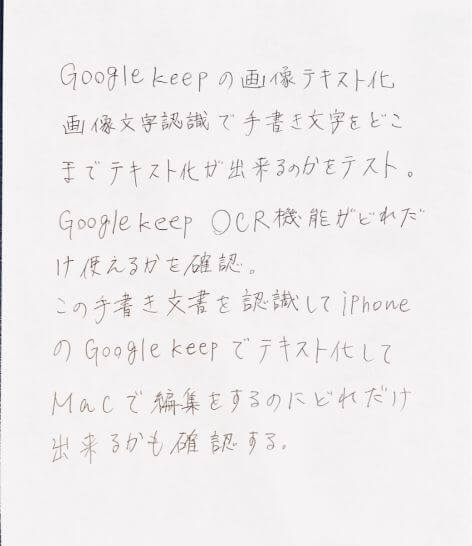 Google keepの画像テキスト化
画像文字認識で手書き文字をどこ
までテキスト化が出来るのかをテスト。
Google keep OCR機能がどれだ
け使えるかを確認。
この手書き文書を認識してiPhone
のGoogle keepでテキスト化して
Macで編集をするのにどれだけ
出来るかも確認する。